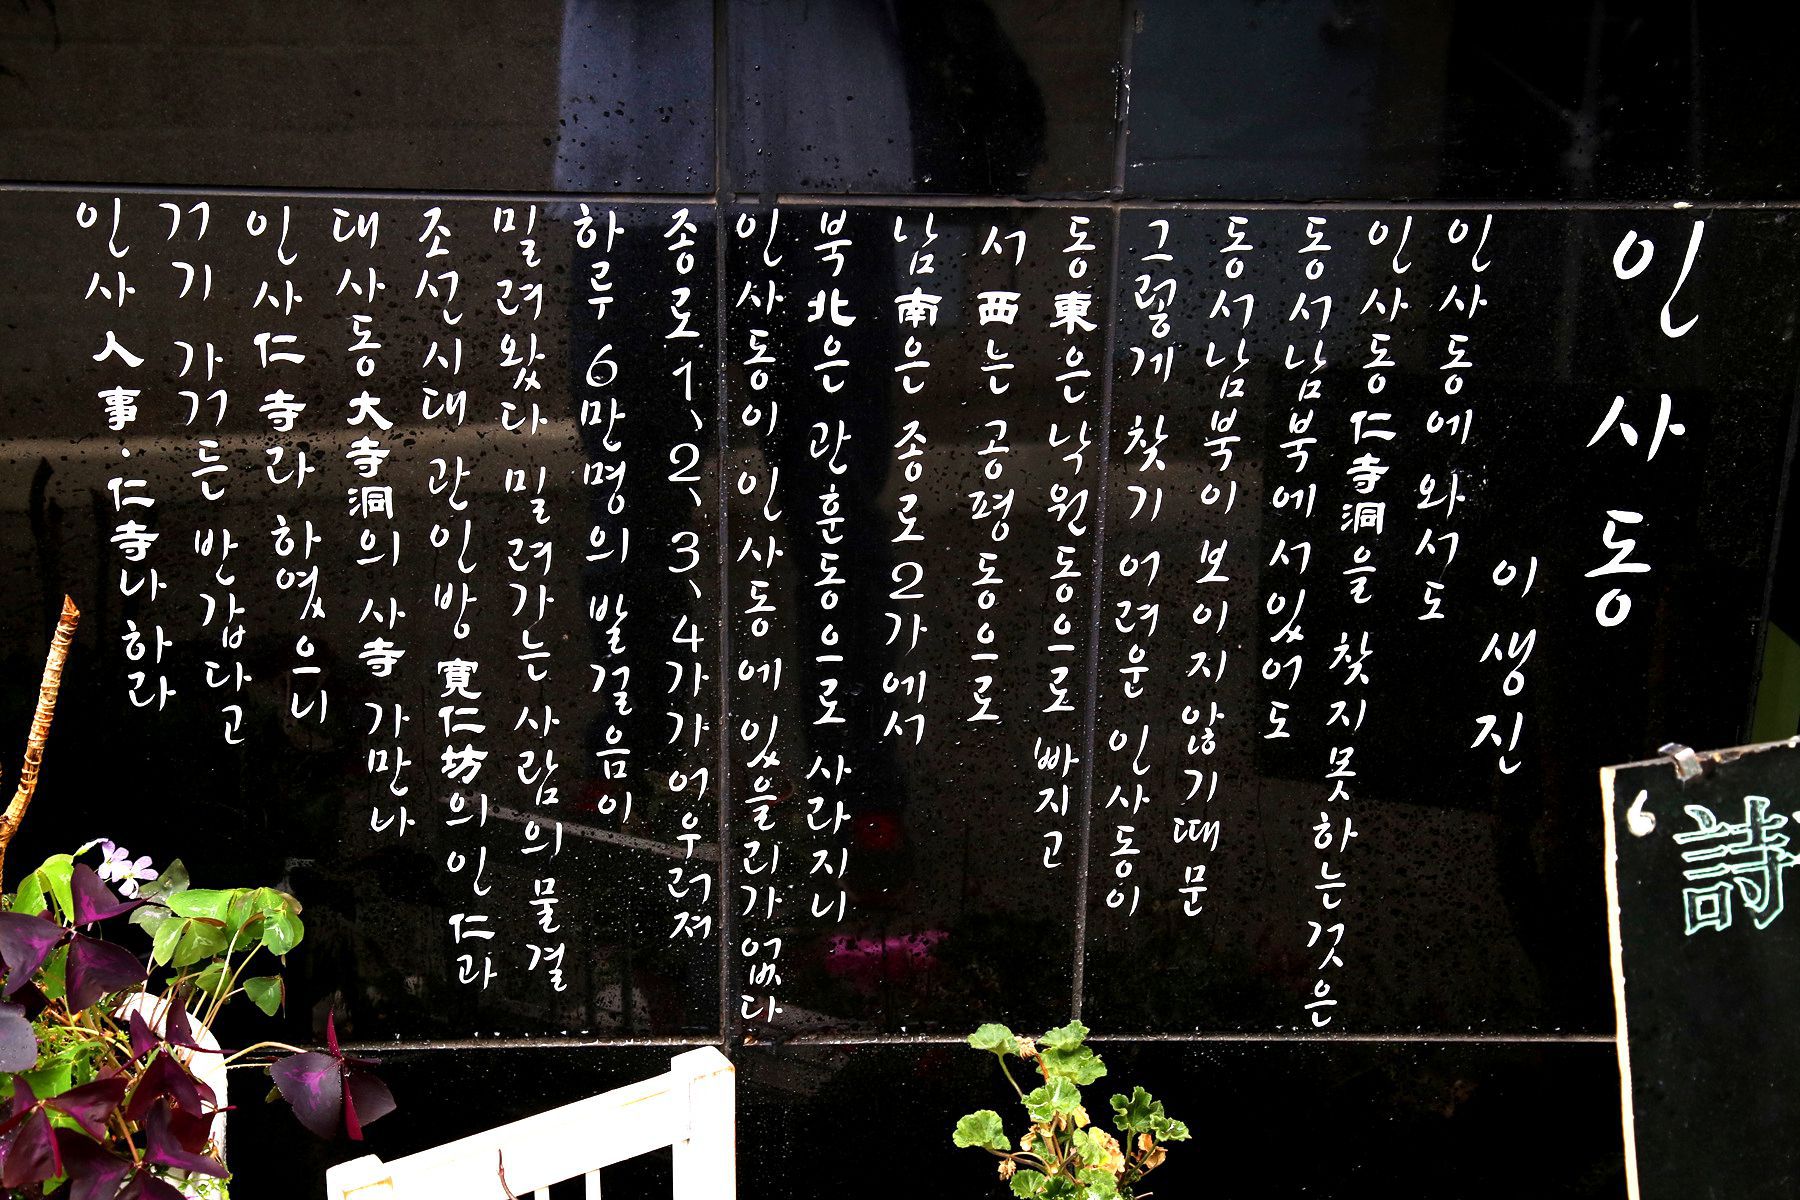 인사동
이생진
인사동에 와서도
인사동仁寺洞을 찾지못하는것은
동서남북에 서있어도
동서남북이 보이지 않기때문
그렇게 찾기 어려운 인사동이
동東은 낙원동으로 빠지고
서西는 공평동으로
남南은 종로2가에서
북北은 관훈동으로 사라지니
인사동이 인사동에 있을리가없다
종로1、2、3、4가가 어우러져
하루 6만명의 발걸음이
밀려왔다 밀려가는 사람의 물결
조선시대 관인방寬仁坊의 인仁과
대사동大寺洞의 사寺 가만나
인사仁寺라 하였으니
거기 가거든 반갑다고
인사人事·仁寺나하라
詩